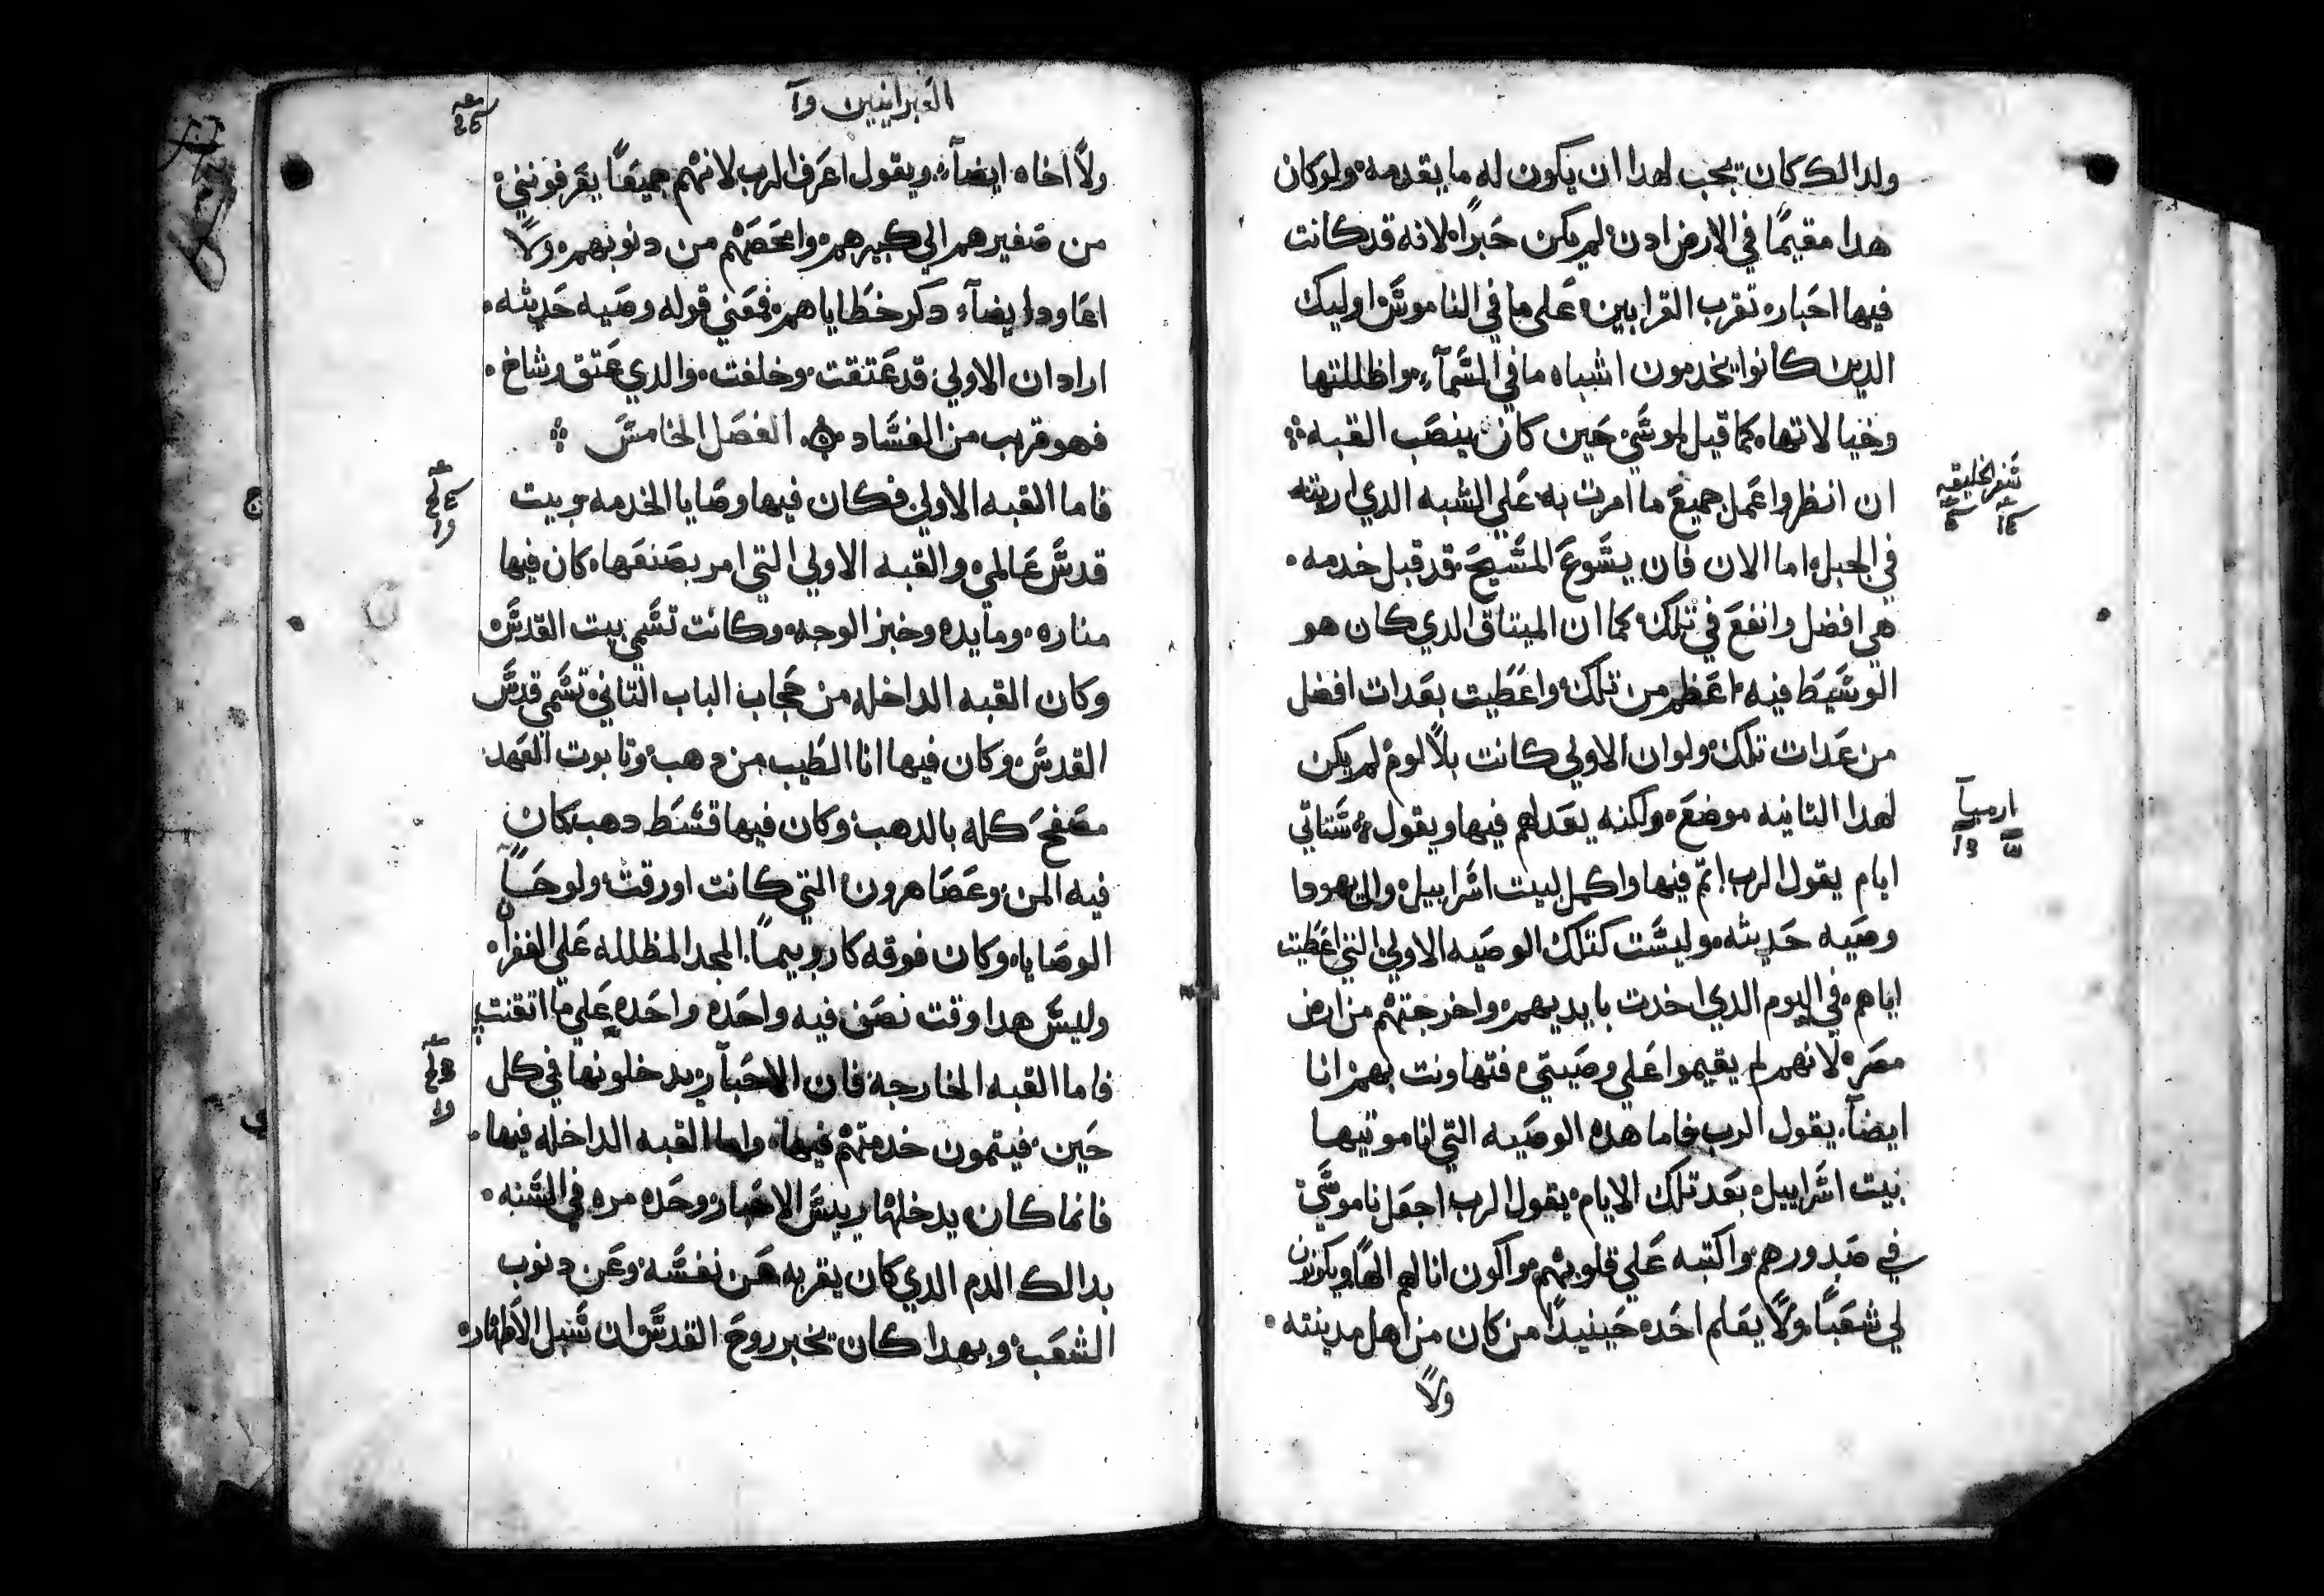 ولدالك كان يجب لهدا ان يكون له ما يقدمه ولو كان
هدا مقيمًا في الارض ادن لم يكن حَبرًا لانه قد كانت
فيها احَبار تقرب القرابين عَلى ما في الناموسَ اوليك
الدين كانوا يخدمون اشباه ما في السَّمآء واظللتها
وخيالاتها كما قيل لموسَي حَين كان ينصَب القبه
ان انظر واعَمل جميعَ ما امرت به عَلي الشبه الدي اريته
سَفر الخليقه
في الجبل اما الان فان يسَوعَ المسَيحَ قد قبل خدمه
هي افضل وانفعَ في تلك كما ان الميتاق الدي كان هو
الوسَيَط فيه اعَظم من تلك واعَطيت بعَدات افضل
من عَدات تلك ولو ان الاولي كانت بلا لوم لم يكن
لهدا الثانيه موضعَ ولكنه يعَدلهم فيها ويقول سَتاتي
ارميآ
ايام يقول الرب اتم فيها واكمل لبيت اسَراييل وال يهودا
وصَيه حَديثه وليسَت كتلك الوصَيه الاولي التي اعَطيت
اياهم في اليوم الدي اخدت بايديهم واخرجتهم من ارض
مصَر لانهم لم يقيموا عَلي وصَيتي فتهاونت بهم انا
ايضآ يقول الرب فاما هده الوصَيه التي انا موتيها
بيت اسَراييل بعَد تلك الايام يقول الرب اجعَل ناموسَي
في صَدورهم واكتبه عَلي قلوبهم واكون انا لهم الهًا ويكونون
لي شعَبًا ولا يعَلم احَده حَينيدًا من كان من اهل مدينته
ولا
العَبرانيين
ولا اخاه ايضآ ويقول اعَرف الرب لانهم جميعَا يعَرفونني
من صَغيرهم الي كبيرهم وامحَصَهم من دنوبهم ولا
اعَاود ايضآ دكر خطاياهم فمعَني قوله وصَيه حَديثه
اراد ان الاولي قد عَتقت وخلفت والدي عَتق وشاخ
فهو قريب من الفسَاد الفصَل الخامسَ
فاما القبه الاولي فكان فيها وصَايا الخدمه وبيت
قدسَ عَالمي والقبه الاولي التي امر بصَنعَها كان فيها
مناره ومايده وخبز الوجه وكانت تسَمي بيت القدسَ
وكان القبه الداخله من حَجاب الباب التاني تسَمي قدسَ
القدسَ وكان فيها انا الطيب من دهب وتابوت العَهد
مصَفحَ كله بالدهب وكان فيها قسَط دهب كان
فيه المن وعَصَا هرون التي كانت اورقت ولوحَا
الوصَايا وكان فوقه كاروبيما المجد المظلله عَلي الغفران
وليسَ هدا وقت نصَف فيه واحَده واحَده عَلي ما اتقنت
فاما القبه الخارجه فان الاحَبار يدخلونها في كل
حَين فيتمون خدمتهم فيها واما القبه الداخله فيها
فانما كان يدخلها رييسَ الاحَبار وحَده مره في السَنه
بدالك الدم الدي كان يقربه عَن نفسَه وعَن دنوب
الشعَب وبهدا كان يخبر روحَ القدسَ ان سَبل الاطهار